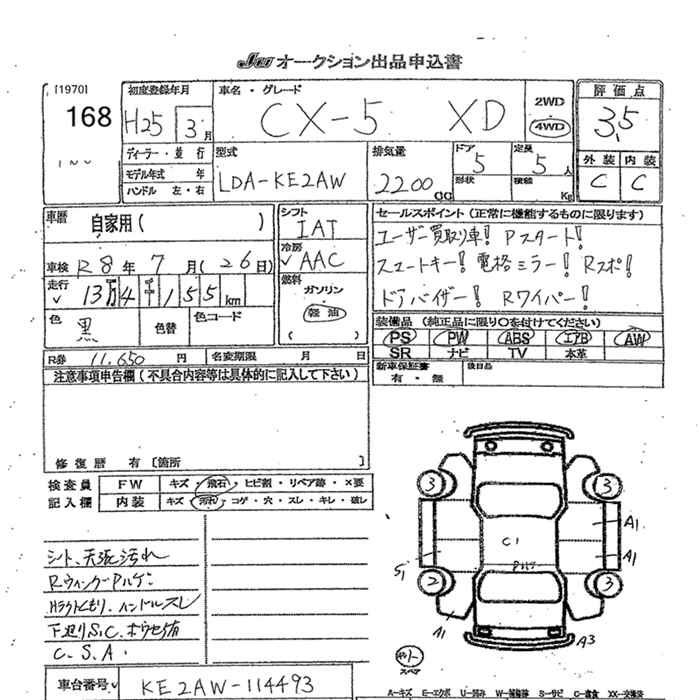 JU オークション出品申込書
[1970]
168
初度登録年月
H25 3月
車名・グレード
CX-5 XD
2WD
4WD
評価点
3.5
外装 内装
C C
ディーラー・並行
モデル年式 年
ハンドル 左・右
型式
LDA-KE2AW
排気量
2200 CC
ドア
5
形状
定員
5人
積載 Kg
車歴
自家用( )
車検 R8年 7月(26日)
走行
13万4千155km
色
黒
色替
色コード
シフト
IAT
冷房
AAC
燃料
ガソリン
軽油
( )
セールスポイント(正常に機能するものに限ります)
ユーザー買取り車! Pスタート!
スマートキー! 電格ミラー! Rスポ!
ドアバイザー! Rワイパー!
装備品(純正品に限り○を付けてください)
PS PW ABS エアB AW
SR ナビ TV 本革
新車保証書
有・無
後日品
R券 11,650円
名変期限 月 日
注意事項申告欄(不具合内容等は具体的に記入して下さい)
修復歴 有 [箇所 ]
検査員
記入欄
FW キズ・飛石・ヒビ割・リペア跡・×要
内装 キズ・汚れ・コゲ・穴・スレ・キレ・破レ
シート、天張汚れ
ハンドルスレ
下廻りS.C.
C.S.A.
3
3
2
3
A1
A1
S1
C1
A1
A3
スペア
車台番号
KE2AW-114493
A-キズ E-エクボ U-凹み W-補修跡 S-サビ C-腐食 XX-交換済